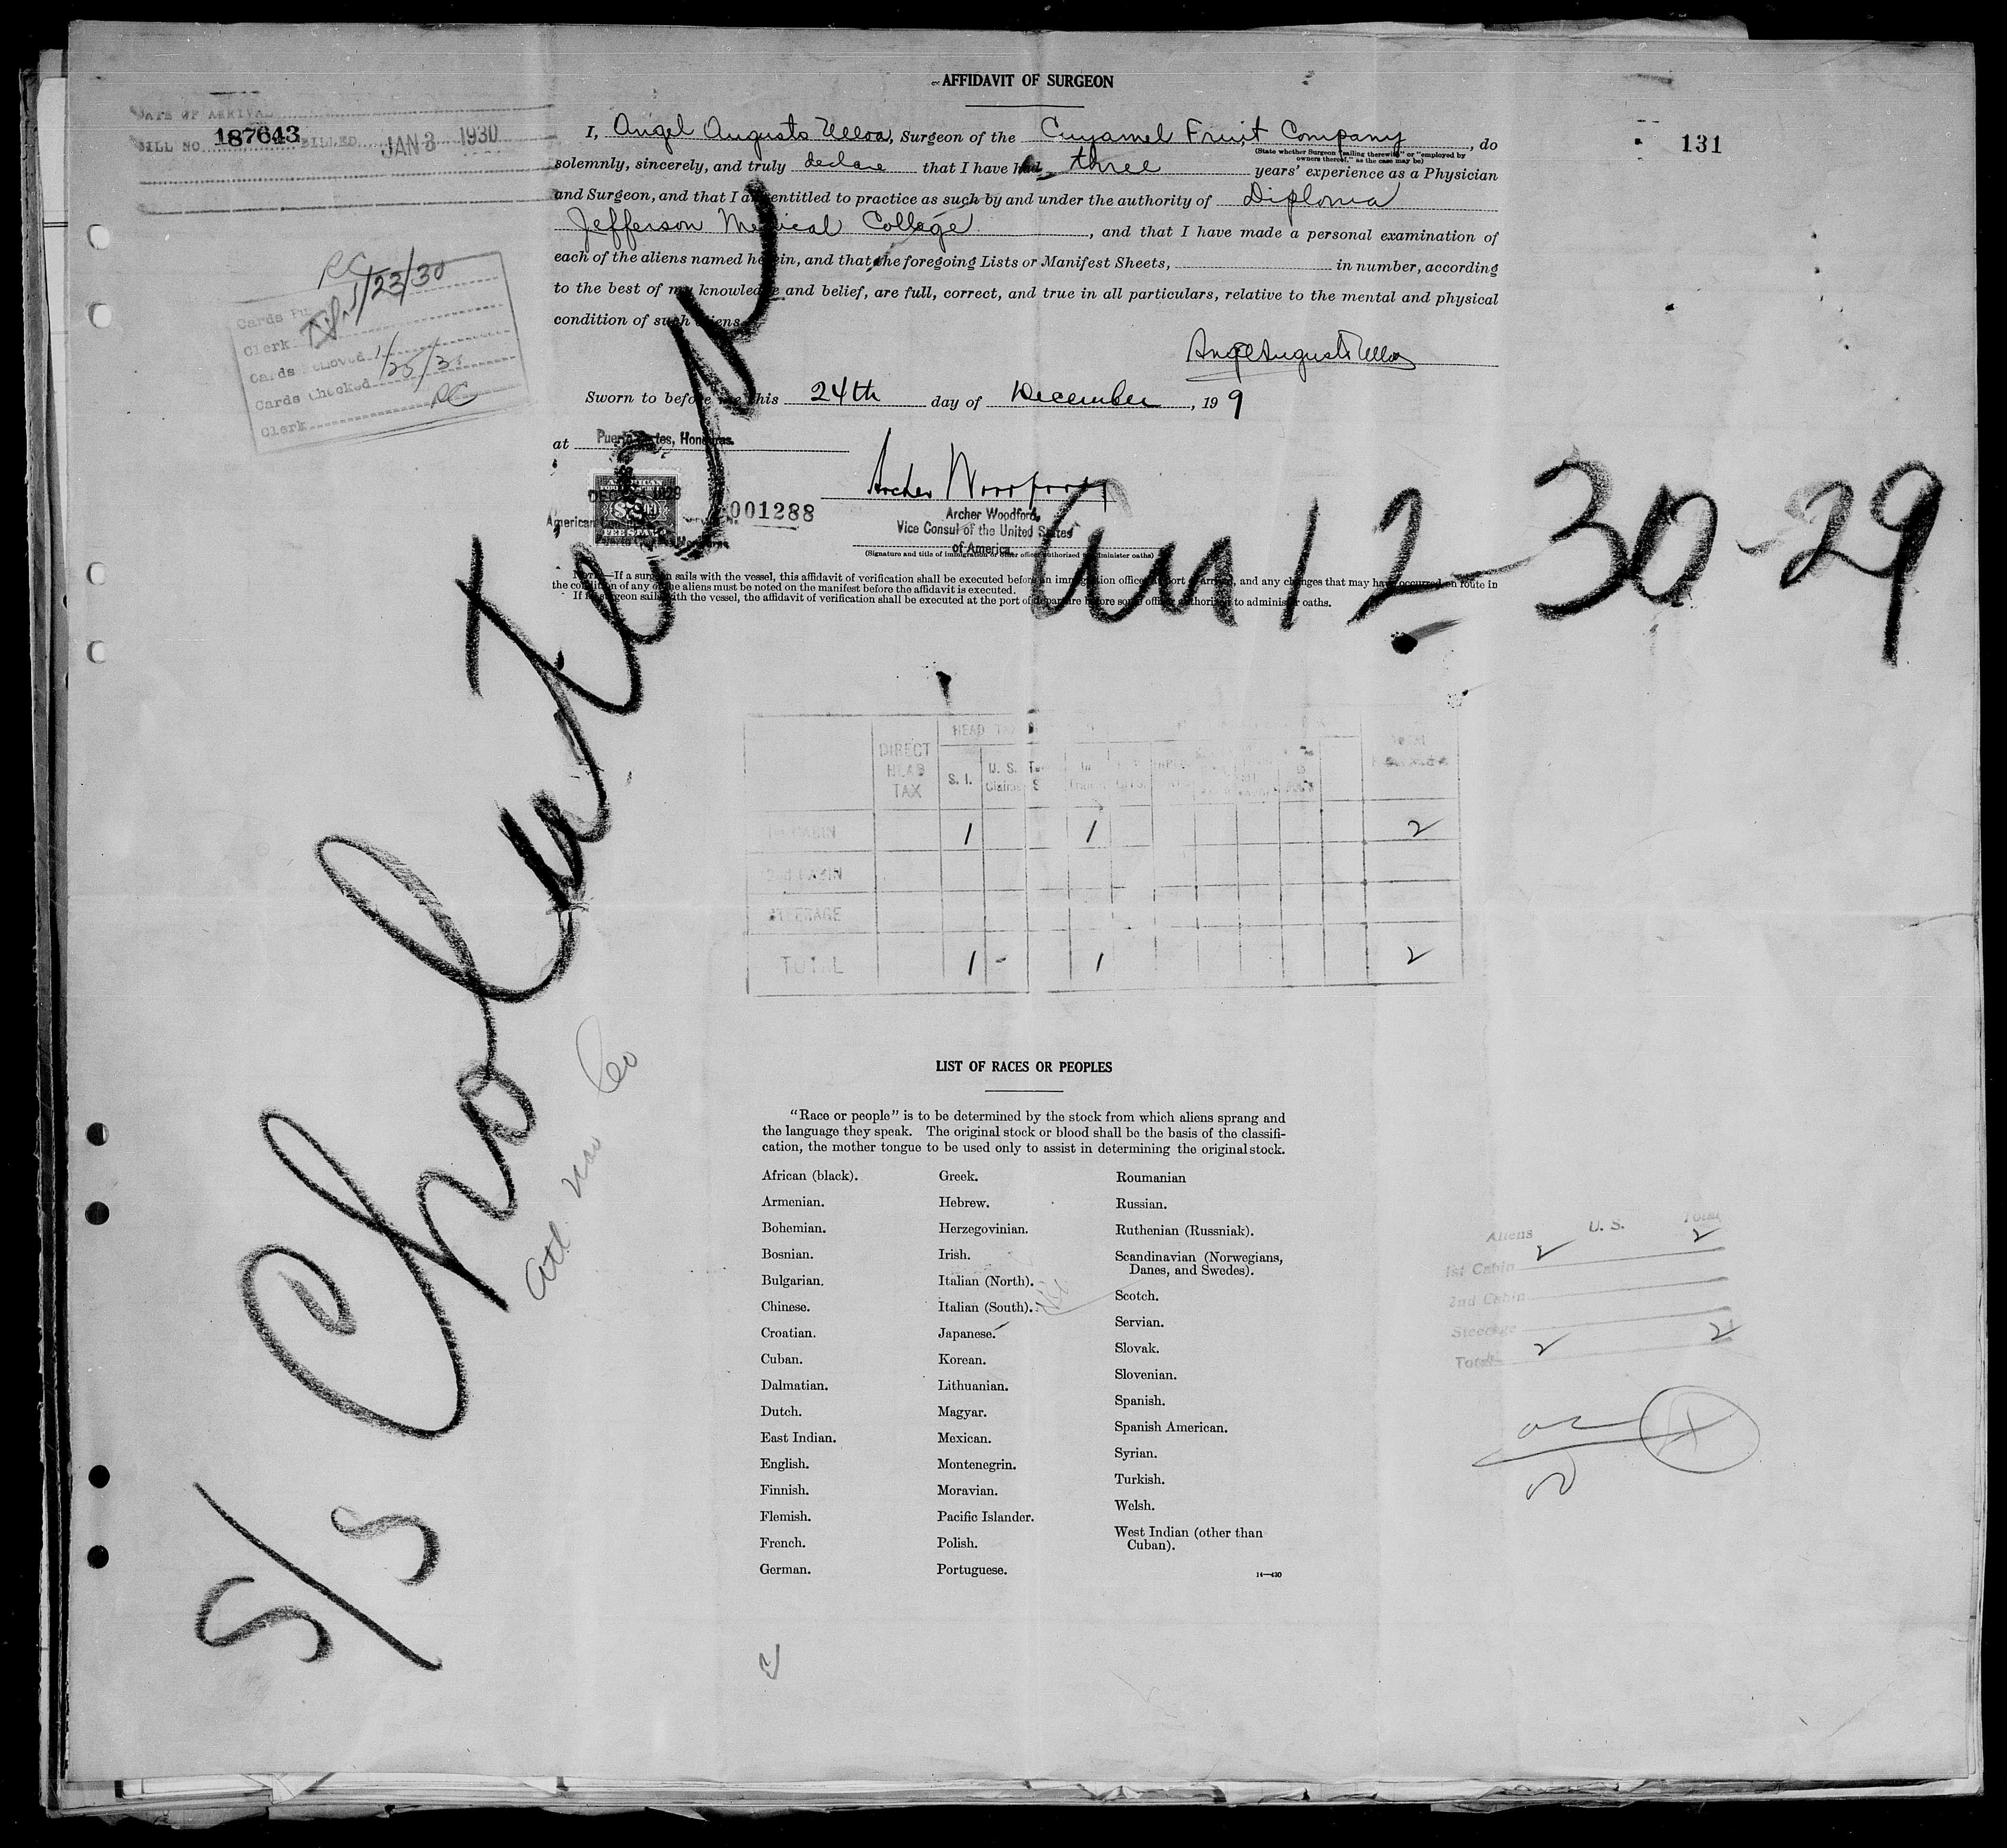 AFFIDAVIT OF SURGEON
DATE OF ARRIVAL
BILL NO. 187643 BILLED JAN 3 1930
131
I, Angel Augusto Ulloa, Surgeon of the Cuyamel Fruit Company, do
(State whether Surgeon "sailing therewith" or "employed by
owners thereof," as the case may be)
solemnly, sincerely, and truly declare that I have had three years' experience as a Physician
and Surgeon, and that I am entitled to practice as such by and under the authority of Diploma
Jefferson Medical College, and that I have made a personal examination of
each of the aliens named herein, and that the foregoing Lists or Manifest Sheets, in number, according
to the best of my knowledge and belief, are full, correct, and true in all particulars, relative to the mental and physical
condition of such aliens.
Angel Augusto Ulloa
Sworn to before me this 24th day of December, 19 9
at Puerto Cortes, Honduras.
RC
Cards Pu
1/23/30
Clerk
Cards Removed 1/25/3
Cards Checked
RC
Clerk
001288
Archer Woodford
Archer Woodford,
Vice Consul of the United States
of America
(Signature and title of immigration or other officer authorized to administer oaths)
NOTE.—If a surgeon sails with the vessel, this affidavit of verification shall be executed before an immigration officer at port of arrival, and any changes that may have occurred en route in
the condition of any of the aliens must be noted on the manifest before the affidavit is executed.
If no surgeon sails with the vessel, the affidavit of verification shall be executed at the port of departure before some officer authorized to administer oaths.
S/S Choluteca
12-30-29
DIRECT HEAD TAX
HEAD TAX
S. I.
U. S. Claims
CABIN 1 1 2
CABIN
STEERAGE
TOTAL 1 - 1 2
LIST OF RACES OR PEOPLES
"Race or people" is to be determined by the stock from which aliens sprang and
the language they speak. The original stock or blood shall be the basis of the classifi-
cation, the mother tongue to be used only to assist in determining the original stock.
African (black).
Armenian.
Bohemian.
Bosnian.
Bulgarian.
Chinese.
Croatian.
Cuban.
Dalmatian.
Dutch.
East Indian.
English.
Finnish.
Flemish.
French.
German.
Greek.
Hebrew.
Herzegovinian.
Irish.
Italian (North).
Italian (South).
Japanese.
Korean.
Lithuanian.
Magyar.
Mexican.
Montenegrin.
Moravian.
Pacific Islander.
Polish.
Portuguese.
Roumanian
Russian.
Ruthenian (Russniak).
Scandinavian (Norwegians,
Danes, and Swedes).
Scotch.
Servian.
Slovak.
Slovenian.
Spanish.
Spanish American.
Syrian.
Turkish.
Welsh.
West Indian (other than
Cuban).
14—430
Aliens U. S. Total
1st Cabin 2 2
2nd Cabin
Steerage
Total 2 2